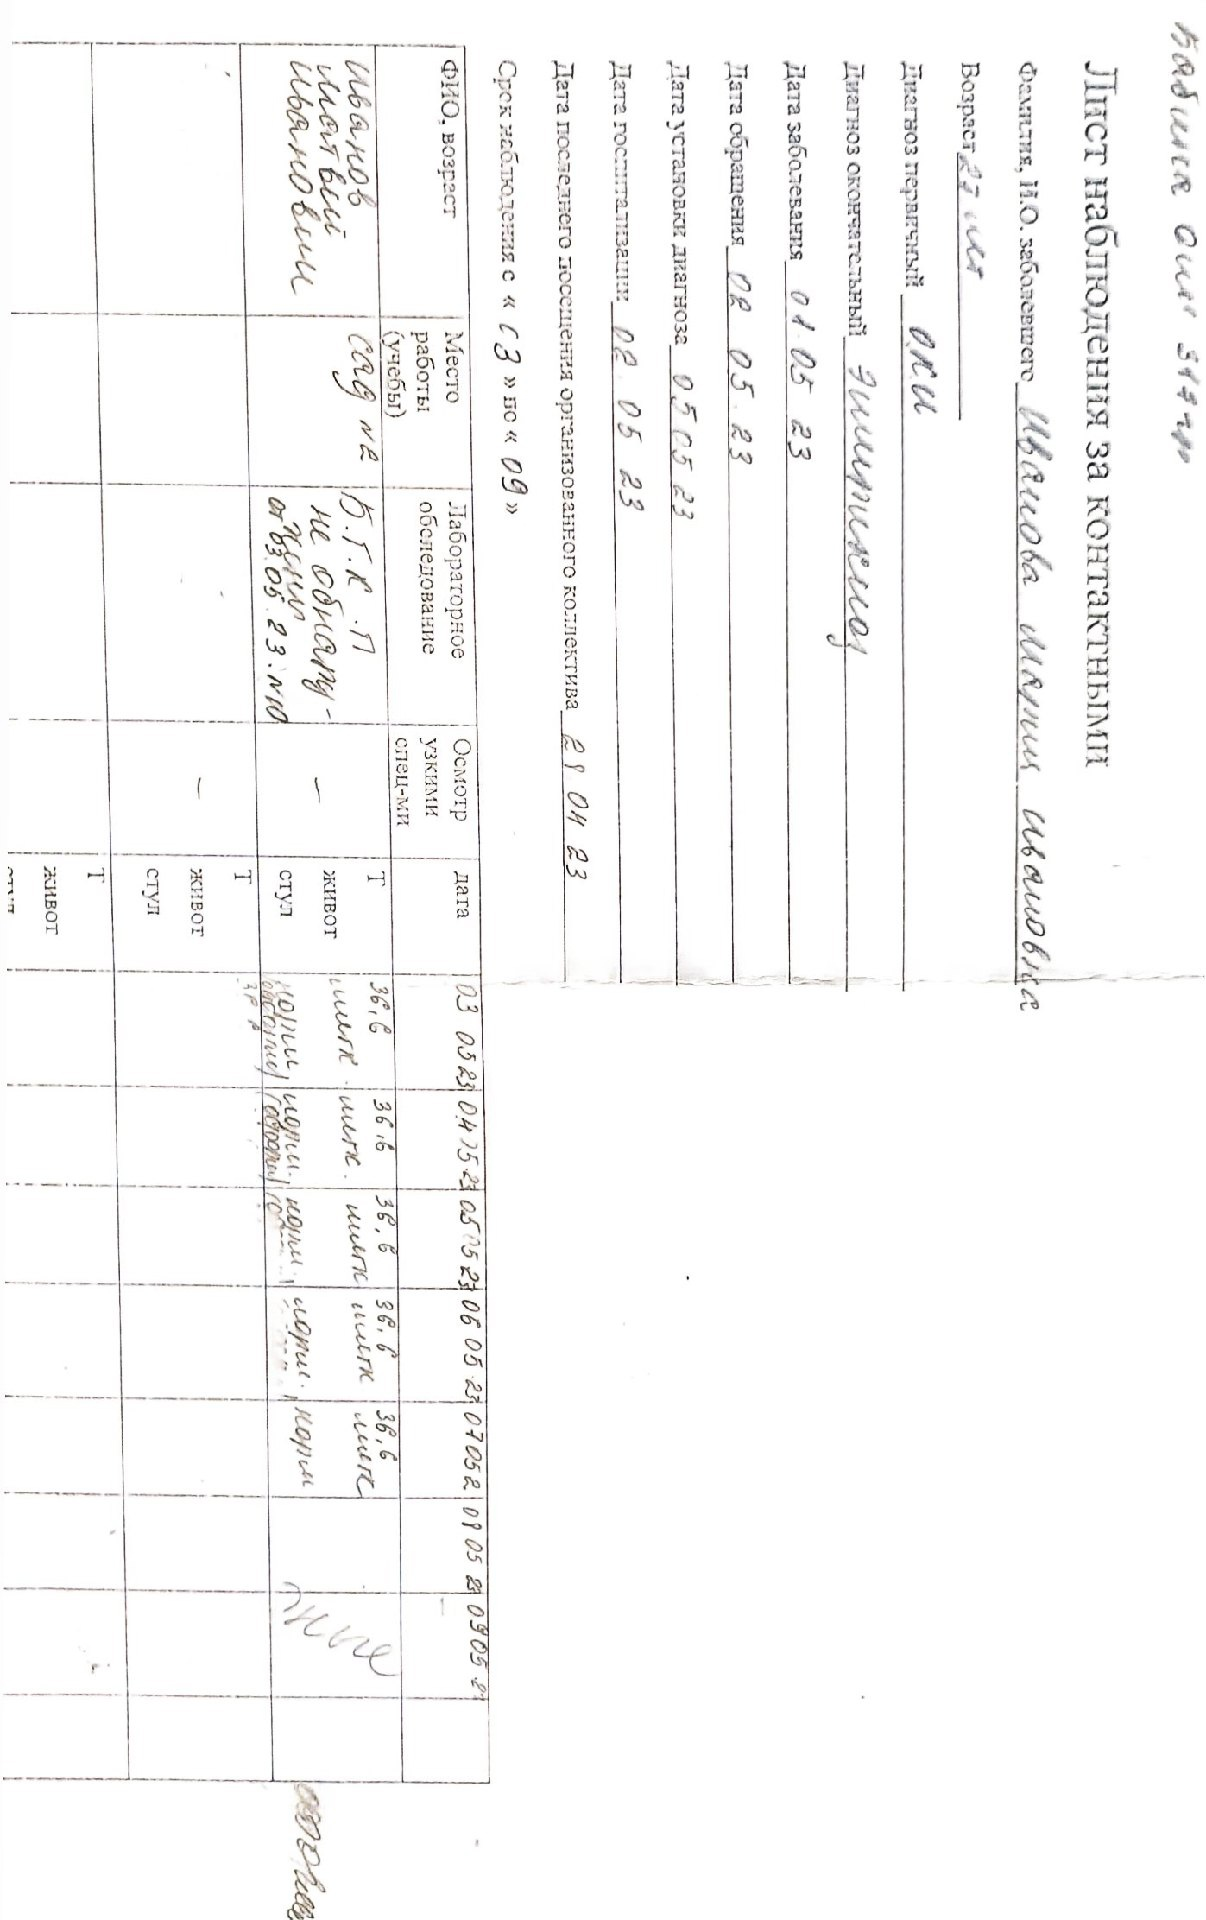 Лист наблюдения за контактными
Фамилия, И.О. заболевшего Иванова Мария Ивановна
Возраст 27 лет
Диагноз первичный ОКИ
Диагноз окончательный Эшерихиоз
Дата заболевания 01 05 23
Дата обращения 02 05.23
Дата установки диагноза 05 05 23
Дата госпитализации 02.05 23
Дата последнего посещения организованного коллектива 28 04 23
Срок наблюдения с « 03 » по « 09 »
ФИО, возраст Место работы (учебы) Лабораторное обследование Осмотр узкими спец-ми дата 03 05 23 04 05 23 05 05 23 06 05.23 07 05 2 08 05 23 09 05 2
Иванов сад № Б.Г.К.П – Т 36,6 36.6 36,6 36,6 36,6
Матвей не обнару- живот мягк. мягк. мягк мягк мягк
Иванович жили стул норм норм. норм. норм. норм
от 03.05.23.
– Т
живот
стул
Т
живот
стул